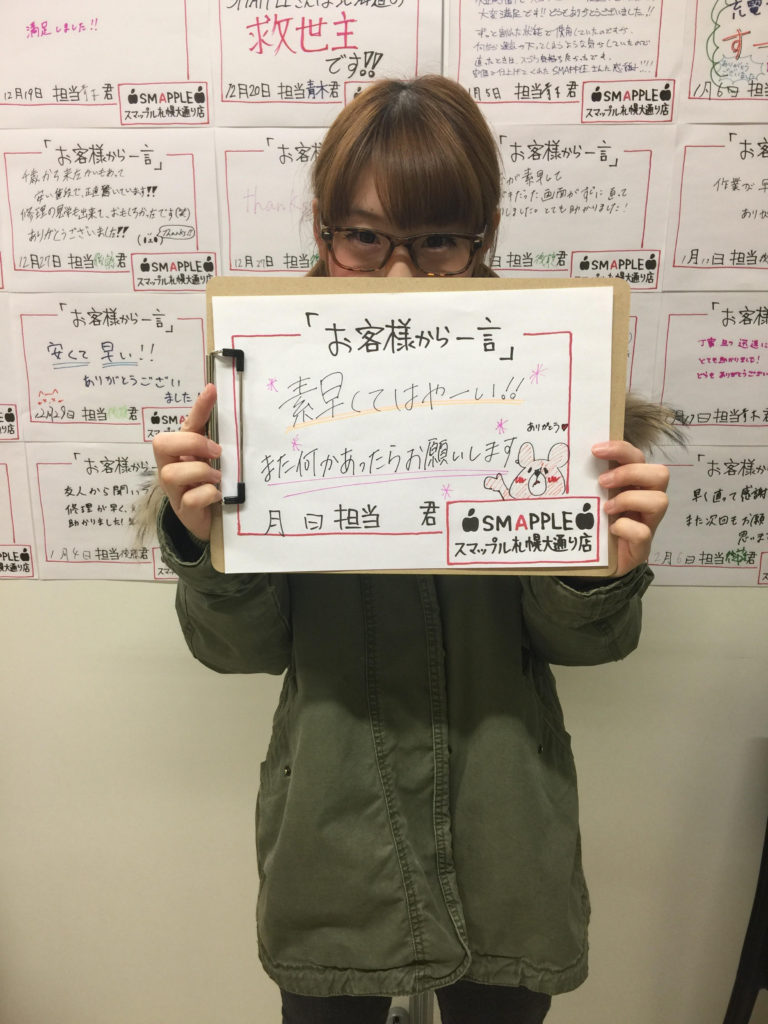 満足しました!!
12月19日 担当 君
SMAPPLE
スマップル札幌大通り店
救世主
です!!
12月20日 担当青木君
大変満足です!! どうもありがとうございました!!
1月5日 担当 君
SMAPPLE
スマップル札幌大通り店
1月6日 担当
「お客様から一言」
千歳から来たかいもあって
安い値段で、正直驚いています!!
修理の見学も出来て、おもしろかったです(笑)
ありがとうございました!!
Thanks!!
12月27日 担当 君
SMAPPLE
スマップル札幌大通り店
「お客様
thanks
12月27日 担当 君
から一言」
が素早して
だった画面がすぐに直って
しました。とても助かりました!
SMAPPLE
スマップル札幌大通り店
「お客
作業が早
ありが
1月11日 担当 君
「お客様から一言」
安くて 早い!!
ありがとうござい
ました!
12月29日 担当 君
SMA
スマップル
「お客様
とても助かりました!
どうもありがとうござい
月17日 担当 君
「お客様
友人から聞いて
修理が早く、
助かりました!
1月4日 担当 君
「お客様
早く直って感謝
また次回もお願
思いま
2月6日 担当 君
PLE
幌大通り店
「お客様から一言」
素早くてはやーい!!
ありがとう♥
また何かあったらお願いします
月 日 担当 君
SMAPPLE
スマップル札幌大通り店